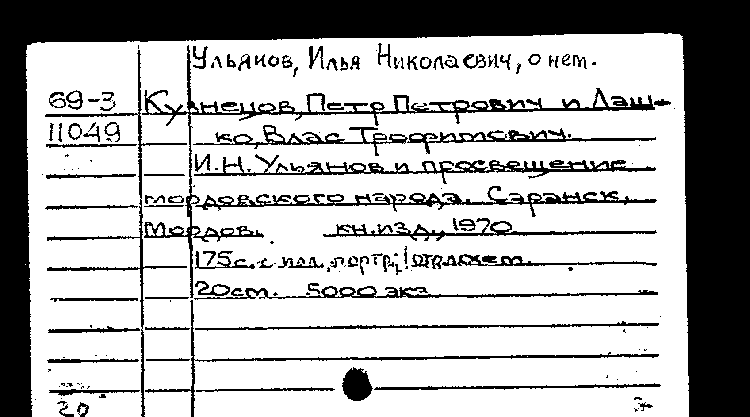 Ульянов, Илья Николаевич, о нем.
69-3 Кузнецов, Петр Петрович и Лаш-
11049 ко, Влас Трофимович.
И.Н. Ульянов и просвещение
мордовского народа. Саранск,
Мордов. кн.изд., 1970
175с. с илл., портр.;
20см. 5000 экз
20